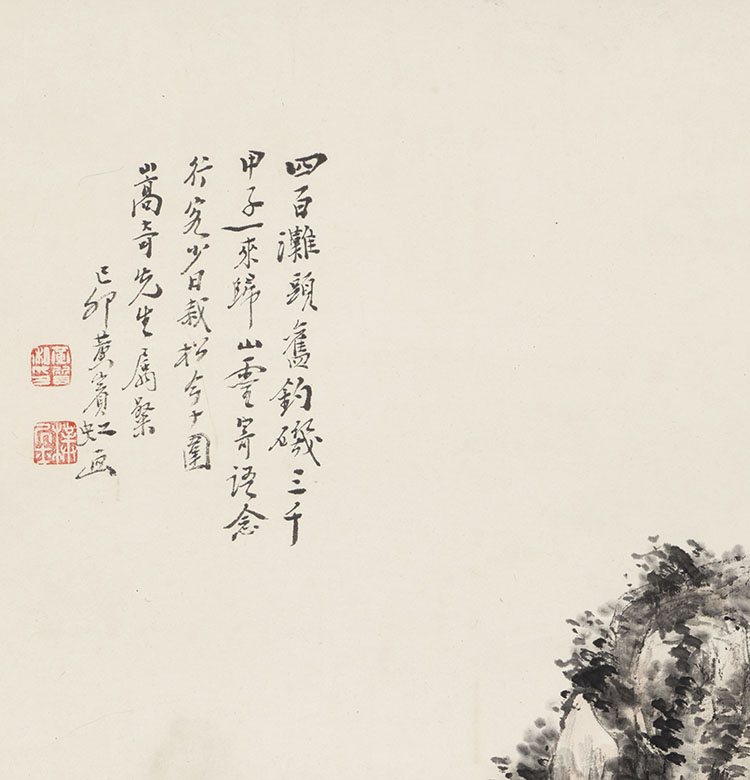 四百灘頭舊釣磯三千
甲子一來歸山靈寄語念
行客少日栽松今十圍
嵩奇先生屬粲
己卯黃賓虹画